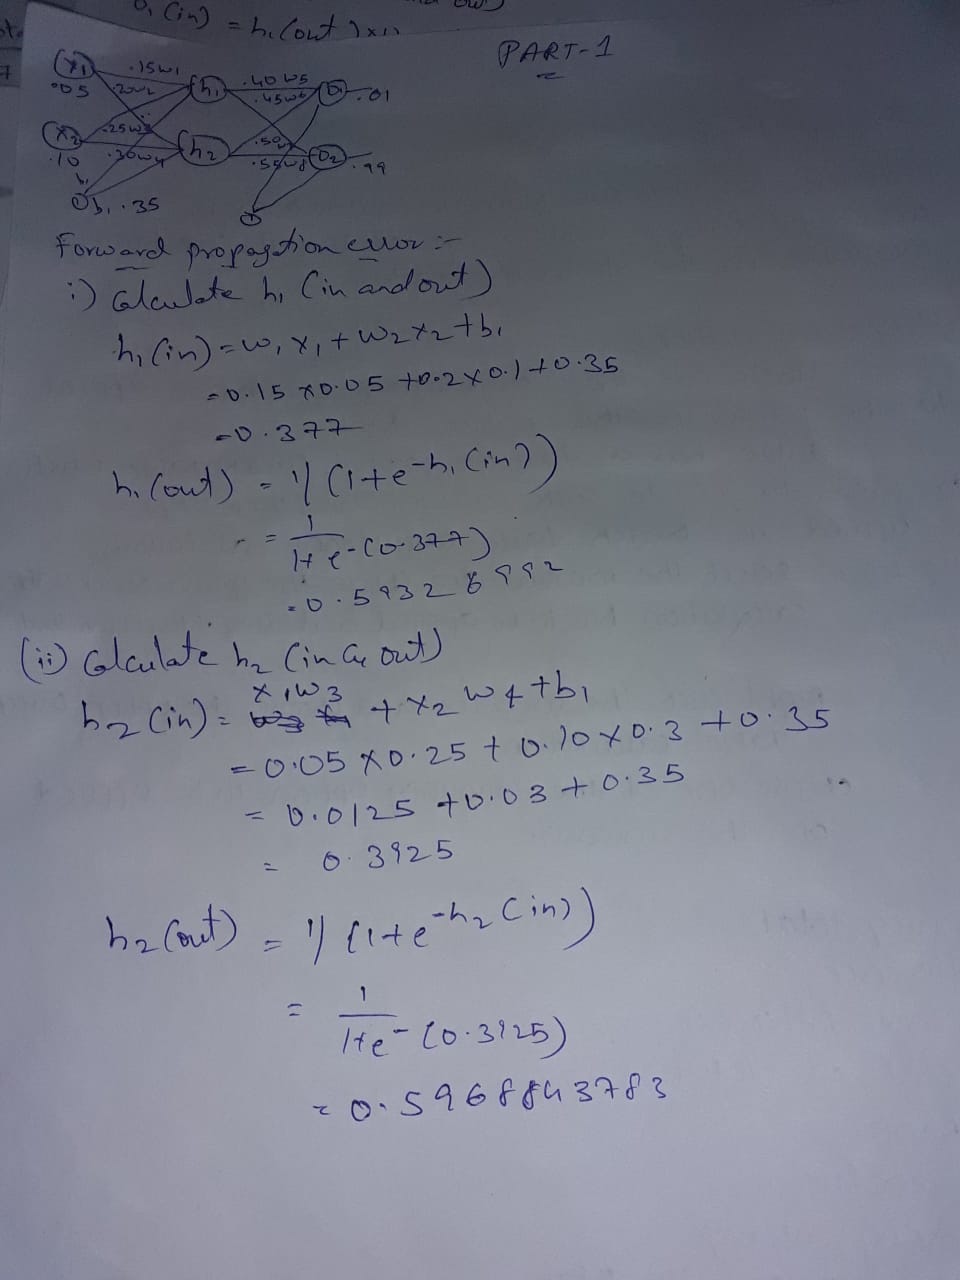 O1 (in) = h1 (out) x w
PART-1
x1 .15w1 h1 .40 w5 O1 .01
.05 .20w2 .45w6
x2 .25w3 h2 .50w7 O2 .99
.10 .30w4 .55w8
b1
b1 .35 1
Forward propagation error :-
i) Calculate h1 (in and out)
h1 (in) = w1 x1 + w2 x2 + b1
= 0.15 x 0.05 + 0.2 x 0.1 + 0.35
= 0.377
h1 (out) = 1/(1+e-h1 (in))
= 1/1+e-(0.377)
= 0.59326992
(ii) Calculate h2 (in & out)
h2 (in) = x1w3 + x2 w4 + b1
= 0.05 x 0.25 + 0.10 x 0.3 + 0.35
= 0.0125 + 0.03 + 0.35
= 0.3925
h2 (out) = 1/(1+e-h2 (in))
= 1/1+e-(0.3925)
= 0.5968843783